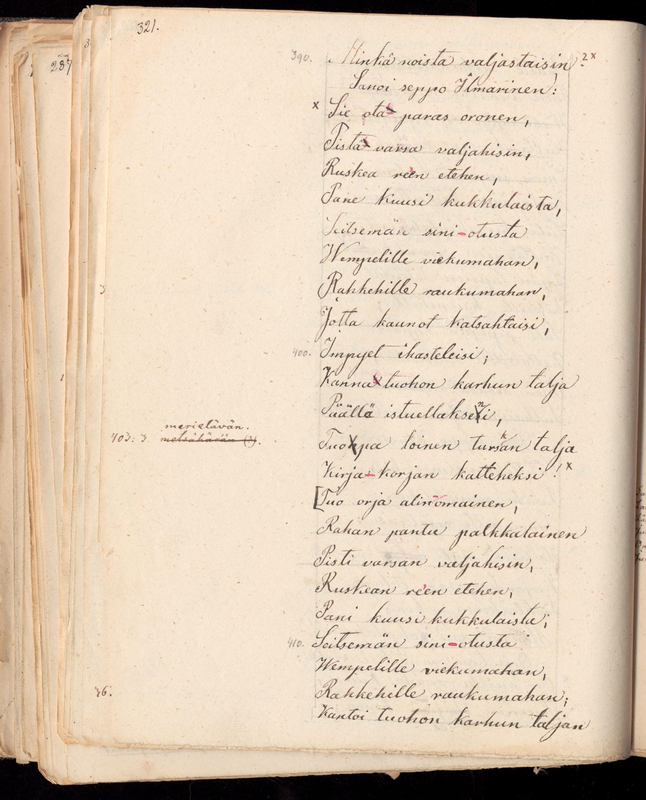 321.
237
390. Minkä noista valjastaisin? 2x
Sanoi seppo Ilmarinen:
x Sie ota paras oronen,
Pistä varsa valjahisin,
Ruskea re'en etehen,
Pane kuusi kukkulaista,
Seitsemän sini-otusta
Wempelille viekumahan,
Rakkehille raukumahan,
Jotta kaunot katsahtaisi,
400. Impyet ihasteleisi;
Kanna tuohon karhun talja
Päällä istuellakseni,
merieläván.
403: 3. metsäkärän (?).
Tuo'pa toinen tursan talja
Kirja-korjan katteheksi! x
[Tuo orja alinomainen,
Rahan pantu palkkalainen
Pisti varsan valjahisin,
Ruskean re'en etehen,
Pani kuusi kukkulaista,
410. Seitsemän sini-otusta
Wempelille viekumahan,
Rakkehille raukumahan;
36.
Kantoi tuohon karhun taljan